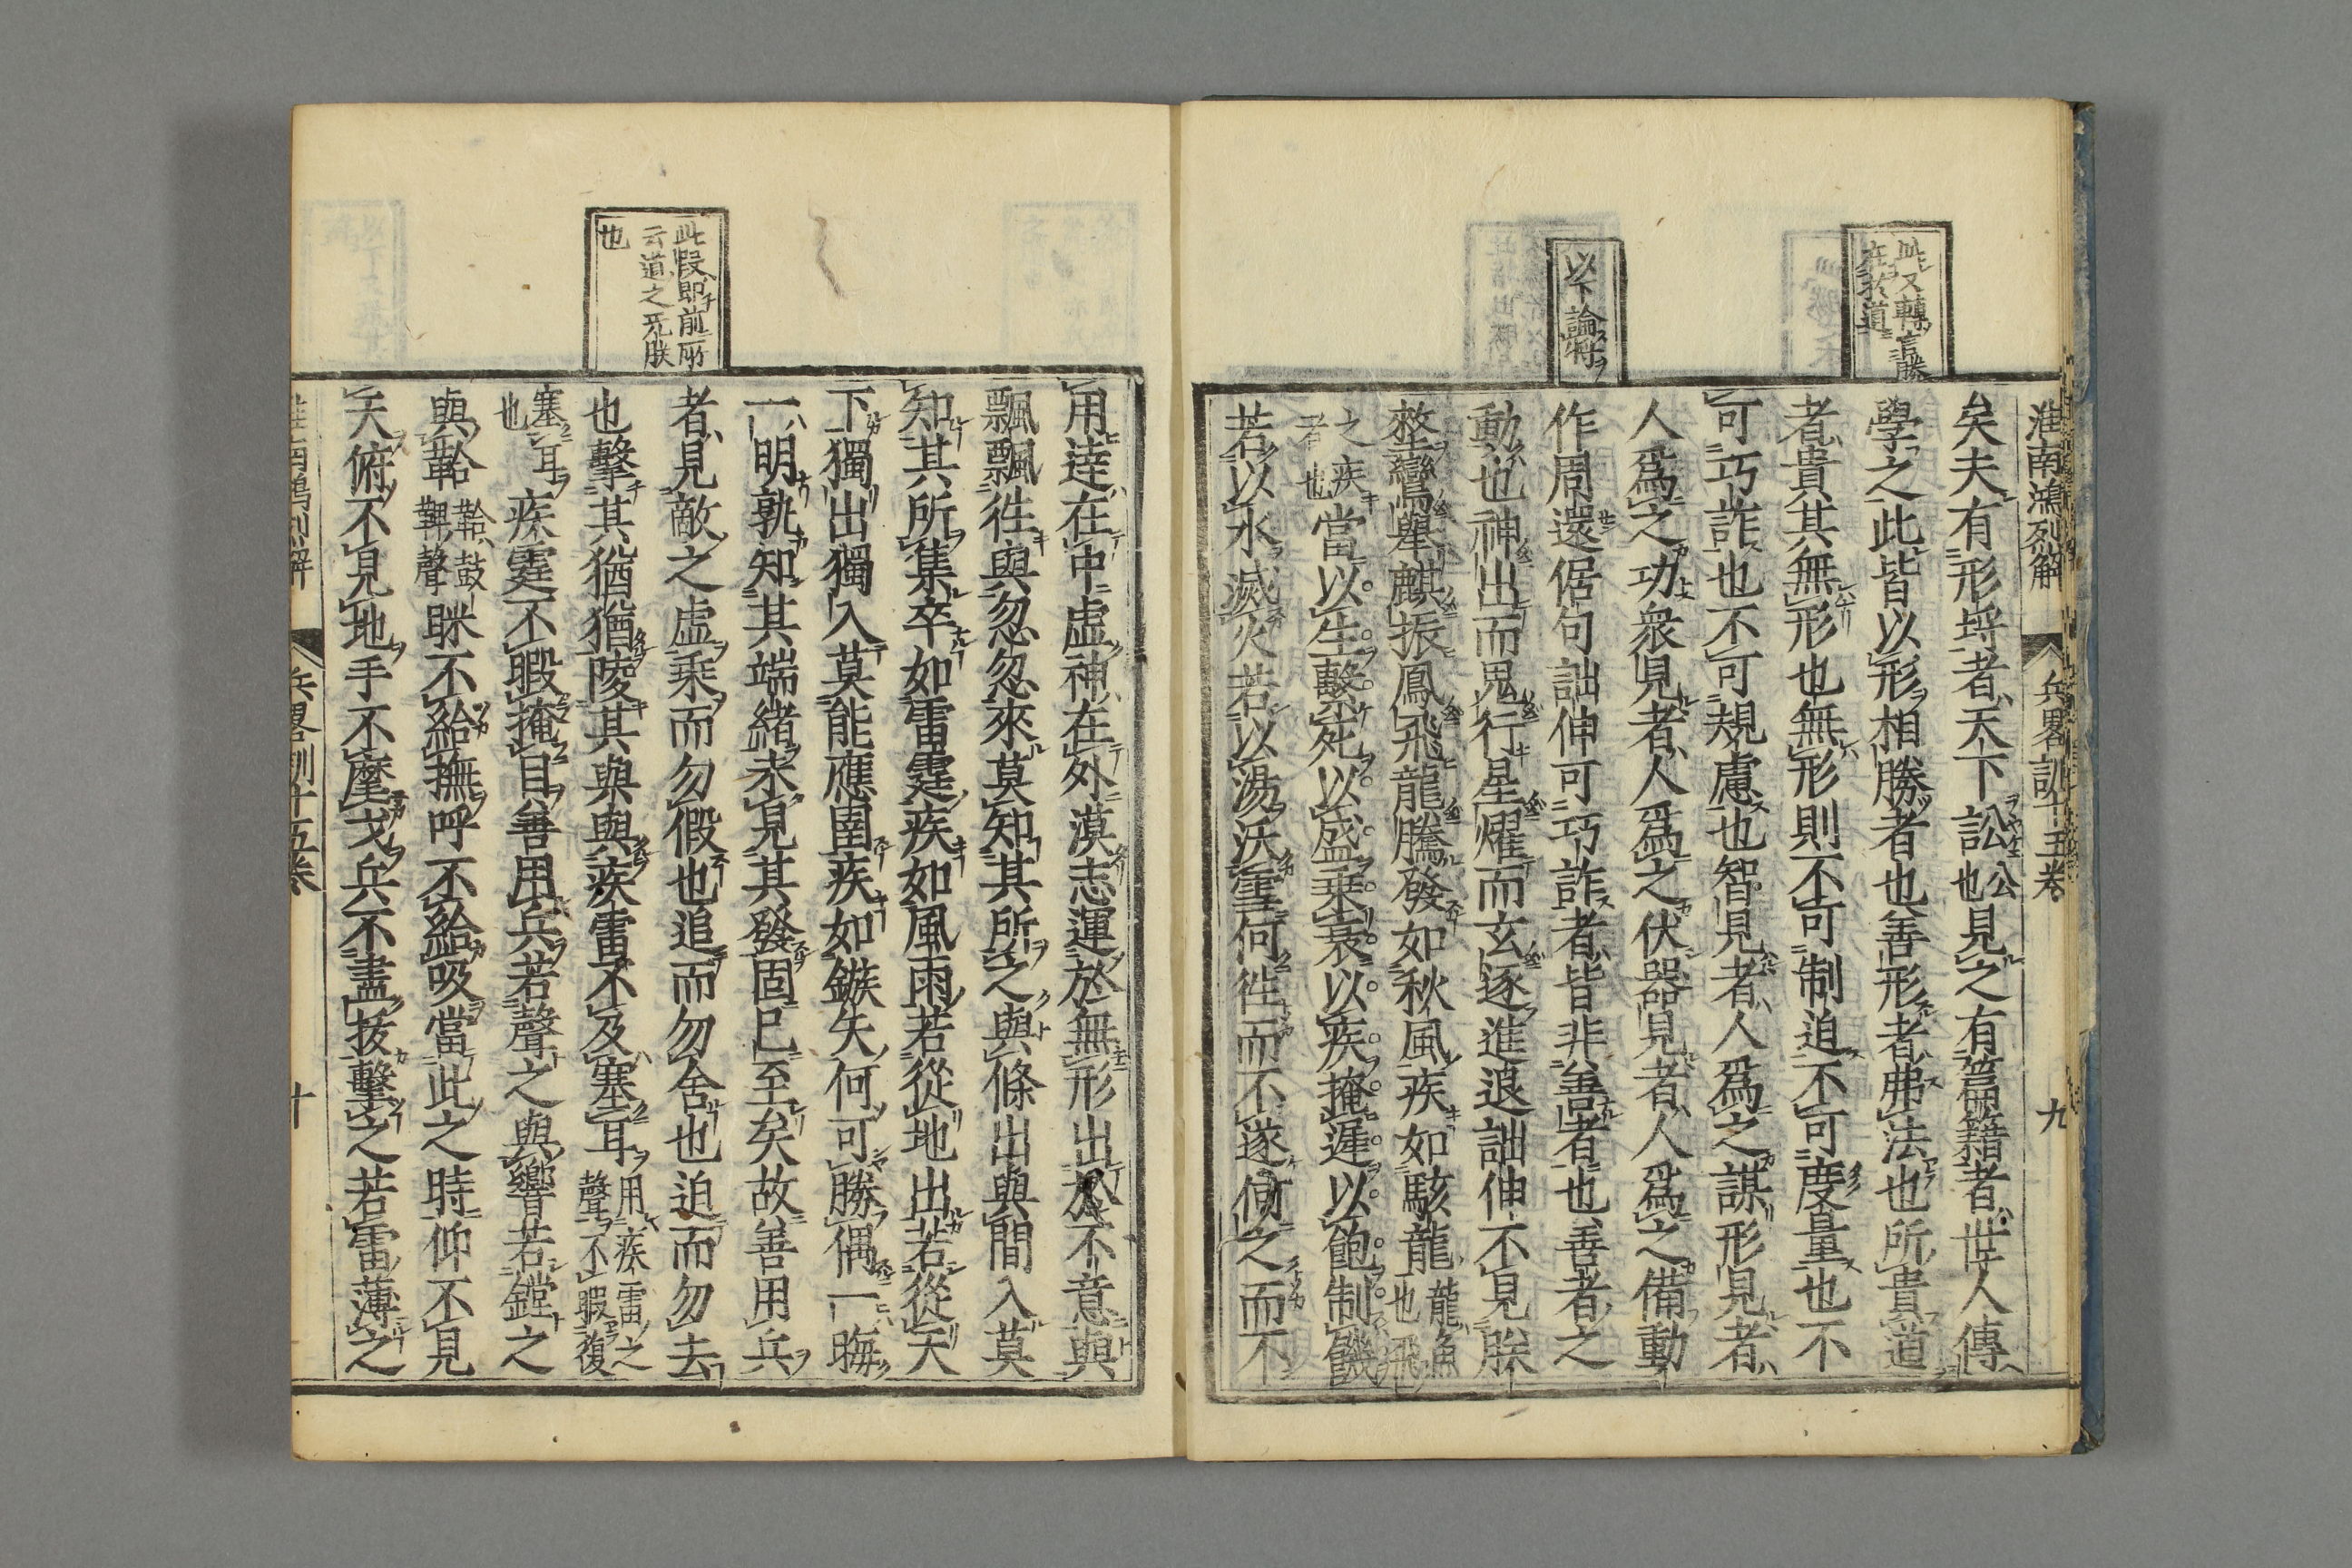 淮南鴻烈解
兵畧訓十五卷
九
此又轉言勝
在於道
以下論將
矣夫有形埒者天下訟公也見之有篇籍者世人傳
學之此皆以形相勝者也善形者弗法也所貴道
者貴其無形也無形則不可制迫不可度量也不
可巧詐也不可規慮也智見者人爲之謀形見者
人爲之功衆見者人爲之伏器見者人爲之備動
作周還倨句詘伸可巧詐者皆非善者也善者之
動也神出而鬼行星燿而玄逐進退詘伸不見朕
墪鸞舉麟振鳳飛龍騰發如秋風疾如駭龍龍魚也飛
之疾者也當以生擊死以盛乗衰以疾掩遲以飽制饑
若以水滅火若以湯沃雪何徃而不遂何之而不
此段即前所
云道之无朕
也
用逹在中虛神在外漠志運於無形出於不意與
飄飄徃與忽忽來莫知其所之與條出與間入莫
知其所集卒如雷霆疾如風雨若從地出若從天
下獨出獨入莫能應圉疾如鏃矢何可勝偶一晦
一明孰知其端緖未見其發固已至矣故善用兵
者見敵之虛乘而勿假也追而勿舍也迫而勿去
也擊其猶猶陵其與與疾雷不及塞耳用疾雷之聲不暇復
塞耳也疾霆不暇掩目善用兵若聲之與響若鏜之
與鞈鞈鼓鞞聲眯不給撫呼不給吸當此之時仰不見
天俯不見地手不麾戈兵不盡拔擊之若雷薄之
淮南鴻烈解
兵畧訓十五卷
十